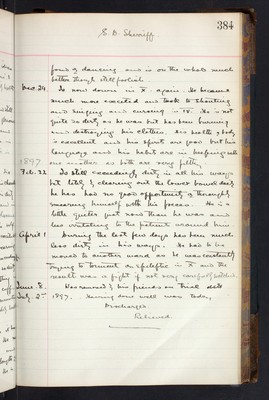 384
E. B. Sherriff
fond of dancing and is on the whole much
better though still foolish.
Dec. 24. Is now down in X. again. He became
much more excited and took to shouting
and singing and cursing in IV. He is not
quite so dirty as he was but has been burning
and destroying his clothes. His health & body
is excellent and his spirits are good but his
language and his habits are
as both are very filthy.
1897
Feb. 22 Is still exceedingly dirty in all his ways
but lately by cleaning out the lower bowel daily
he has had no good opportunity of thoroughly
smearing himself with his faeces. He is a
little quieter just now than he was and
less irritating to the patients around him.
April 1 During the last few days has been much
less dirty in his ways. He had to be
moved to another ward as he was constantly
trying to torment an epileptic in X and the
result was a fight if not very carefully watched.
June 8. Was removed by his friends on Trial
July 2nd 1897. Having done well was today,
Discharged
Relieved.